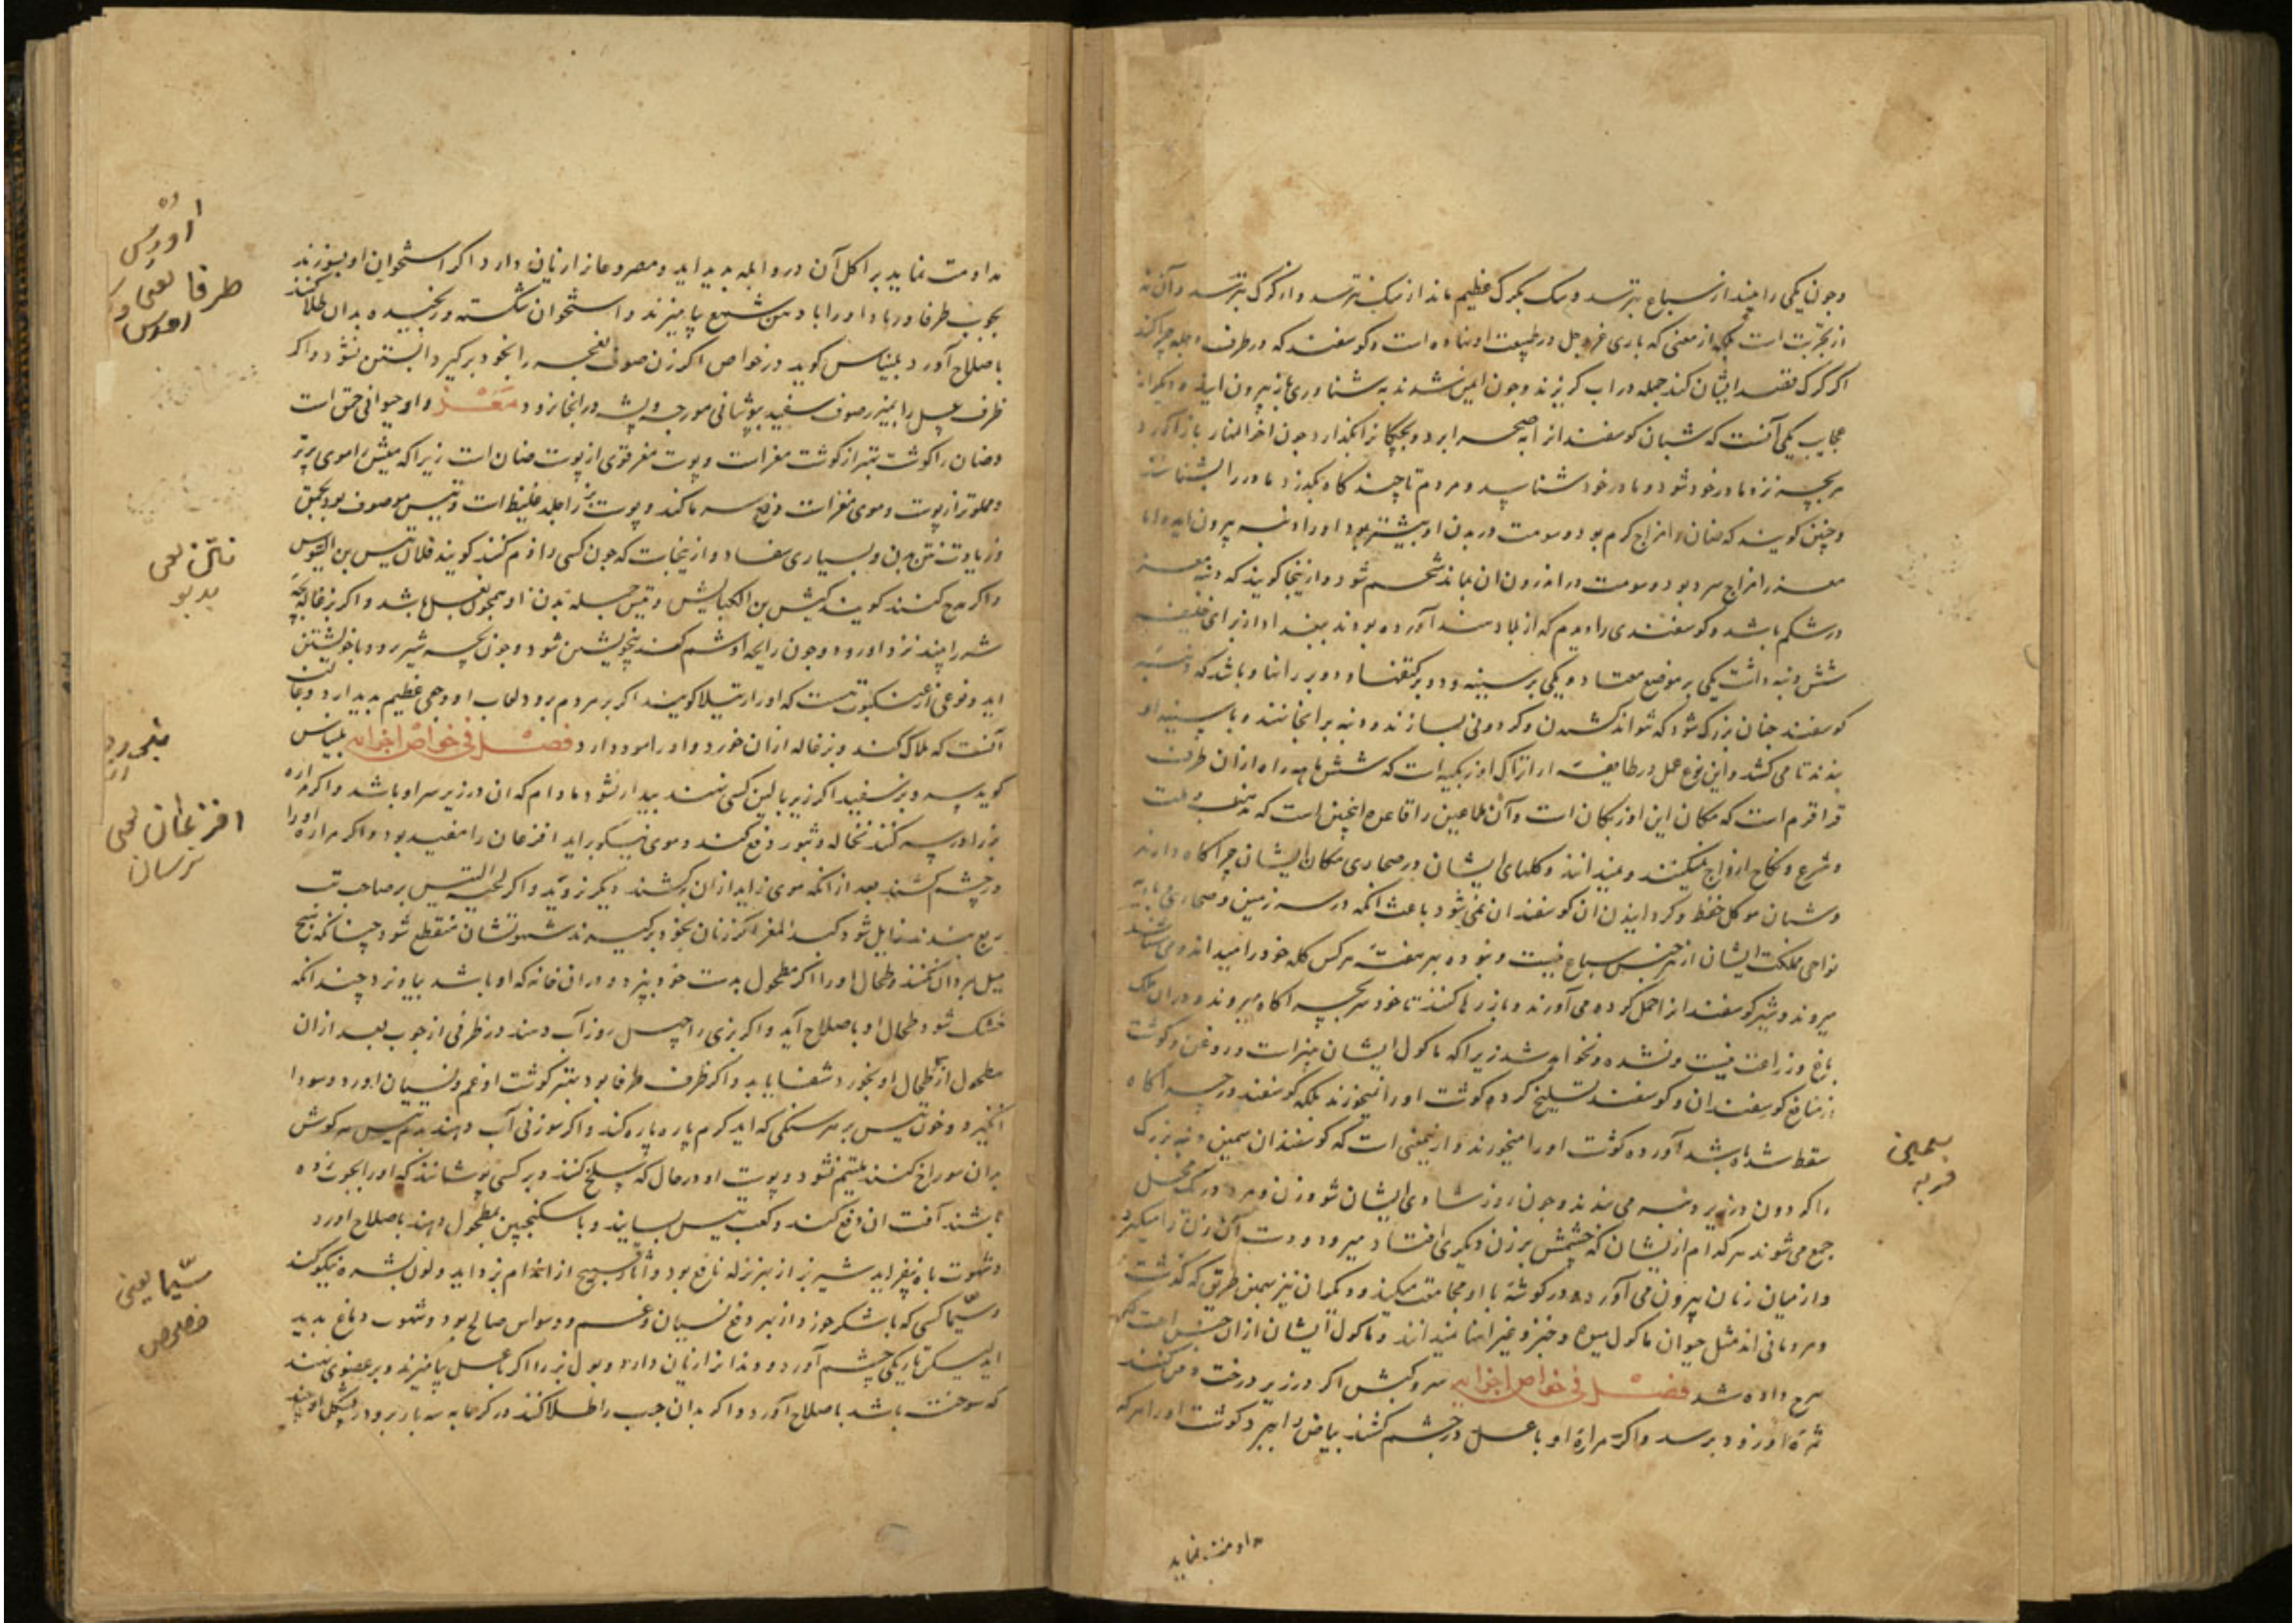 وجون یکی را بیند از سباع بترسد و سک بکرک عظیم ماند از سک نترسد و از کرک بترسد و آن نه
از تجربت است بلکه از معنی که باری عز و جل در طبیعت او نهاده است و کوسفند که در طرف دجله چرا کند
اکر کرک قصد ایشان کند جمله در اب کریزند و چون ایمن شدند به شناوری باز بیرون ایند و دیکر از
عجایب یکی آنست که شبان کوسفند از ابه صحرا برد و بچکانرا بکذارد چون اخر النهار باز آورد
هر بچه نزد مادر خود شود و مادر خود شناسد و مردم تا چند کاه بکذرد مادر را نشناسند
و چنین کویند که ضان را مزاج کرم بود و سومت در بدن او بیشتر بود او را دنبه بیرون اید و اما
معز را مزاج سرد بود و سومت در اندرون ان بماند شحم شود و ازینجا کویند که دنبه معز
در شکم باشد و کوسفندی را دیدم که از بلاد هند آورده بودند ببغداد از برای خلیفه
شش دنبه داشت یکی بر موضع معتاد و یکی بر سینه و دو بر کتفها و دو بر رانها و باشد که دنبه
کوسفند چنان بزرک شود که نتواند کشیدن و کردونی بسازند و دنبه بر انجا نهند و با سینه او
بندند تا می کشد و این نوع عمل در طایفه از اتراک اوزبکیه است که شش ماهه راه از ان طرف
قراقرم است که مکان این اوزبکان است و آن ملاعین را قاعده اینچنین است که مذهب و ملت
و شرع و نکاح ازواج نمیکنند و نمیدانند و کلهای ایشان در صحاری مکان ایشان چراکاه دارند
و شبان موکل حفظ و کردانیدن ان کوسفندان نمی شود باعث انکه در سرزمین و صحاری بادیه
نواحی مملکت ایشان از هر جنس سباع نیست و نبوده بهر هفته هر کس کله خود را میداند و می شناسد
میروند و شیر کوسفند از احمل کرده می آورند و باز رها کنند تا خود سر بچراکاه میروند و در ان ملک
باغ و زراعت نیست و نشده و نخواهد شد زیرا که ماکول ایشان پنیر است و روغن و کوشت
از منافع کوسفندان و کوسفند تسلیخ کرده کوشت او را نمیخورند بلکه کوسفند در چراکاه
سقط شده باشد آورده کوشت او را میخورند و از نمعنی است که کوسفندان سمین دنبه بزرک
را کردون در زیر دنبه می بندند و چون روز شادی ایشان شود زن و مرد در یک محل
جمع می شوند هر کدام از یشان که چشمش بر زن دیکری افتاد میرود و دست آن زن را میکیرد
و از میان زنان بیرون می آورد و در کوشه با او مجامعت میکند و دیکران نیز بهمین طریق که کذشت
و مردمانی اند مثل حیوان ماکول میوه و خبز و غیر انها نمیدانند و ماکول ایشان از ان جنس است که
شرح داده شد فصل فی خواص اجزایه سرو کبش اکر در زیر درخت دفن کنند
ثمره او زود برسد و اکر مراره او با عسل در چشم کشند بیاض را ببرد کوشت او را هر که
سمین
فربه
مداومت نماید
مداومت نماید بر اکل آن درو ابله بدید اید و مصروعانرا زیان دارد و اکر استخوان او بسوزند
بچوب طرفا و رماد او را با دهن شمع بیامیزند و استخوان شکسته و رنجیده بدان طلا کنند
باصلاح آورد بلیناس کوید در خواص اکر زن صوف نعجه را بخود برکیرد ابستن نشود و اکر
ظرف عسل را بمیزر صوف سفید بپوشانی مورچه و پشه در انجا نرود معز و او حیوانی حق است
و ضان را کوشت بهتر از کوشت معز است و پوست معز قوی از پوست ضان است زیرا که میش را موی پرتر
و مملوتر از پوست و موی معز است دفع سرما کند و پوست بز را جلد غلیظ است و تیس موصوف بود بحمق
و زیادت نتن بدن و بسیاری سفاد و از ینجاست که چون کسی را ذم کنند کویند فلان تیس بن التیوس
و اکر مدح کنند کویند کبش بن الکباش و تیس جمله بدن او همچون بغل باشد و اکر بزغاله بچه
شه را چند نزد او رود و چون رایحه او شم کند بیخویشتن شود و چون بچه شیر رود با خویشتن
اید و نوعی از عنکبوت هست که او را رتیلا کویند اکر بر مردم برود لعاب او وجعی عظیم بدید ارد و غالب
آنست که هلاک کند و بزغاله از ان خورد و او را سود دارد فصل فی خواص اجزایه بلیناس
کوید سرو بز سفید اکر زیر بالین کسی نهند بیدار نشود مادام که ان در زیر سر او باشد و اکر مراره
بز را در سر کنند نخاله و ثبور دفع کند و موی نیکو براید افزعان را مفید بود و اکر مراره او را
در چشم کشند بعد از انکه موی زاید از ان برکشند دیکر نروید و اکر لحیه التیس بر صاحب تب
ربع بندند زایل شود کبد المعز اکر زنان بخود برکیرند شهوتشان منقطع شود چنانکه هیچ
میل مردان نکنند و طحال او را اکر مطحول بدست خود ببزد و در ان خانه که او باشد بیاویزد چندانکه
خشک شود طحال او باصلاح آید و اکر بزی را چهل روز آب دهند در ظرفی از چوب بعد از ان
مطحول از طحال او بخورد شفا یابد و اکر ظرف طرفا بود بهتر کوشت او غم و نسیان اورد و سودا
انکیزد و خون تیس بر هر سنکی که اید کرم پاره پاره کند و اکر سوزنی آب دهند بدم تیس هر کوش
بدان سوراخ کنند ملتیم نشود و پوست او در حال که سلخ کنند و بر کسی پوشانند که او را بچوب زده
باشند آفت ان دفع کند و کعب تیس بسایند و با سکنجبین بمطحول دهند باصلاح اورد
و شهوت باه بیفزاید شیر بز از بهر نزله نافع بود و آثار قبیح از اندام بزداید و لون بشره نیکو کند
و سیما کسی که با شکر خورد از بهر دفع نسیان و غم و وسواس صالح بود و شهوب دماغ بدید
اید لیکن تاریکی چشم آورد و دندانرا زیان دارد و بول بز را اکر با عسل بیامیزند و بر عضوی نهند
که سوخته باشد باصلاح آورد و اکر بدان جرب را طلا کنند در کرمابه سه بار برود
طرفا یعنی
ناتن یعنی
بدبو
افزعان یعنی
ترسان
سیما یعنی
خصوص